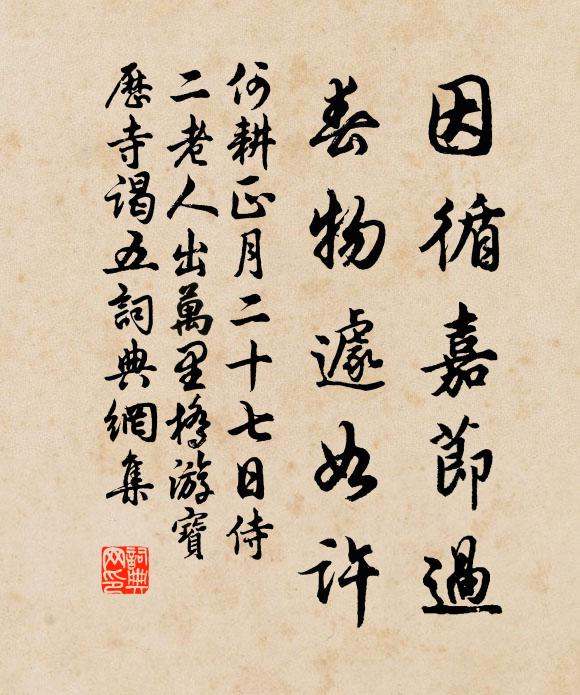 因循嘉節過
春物遽如許
何耕正月二十七日侍
二老人出萬里橋游寶
歷寺謁五詞典網集
詞典
网印